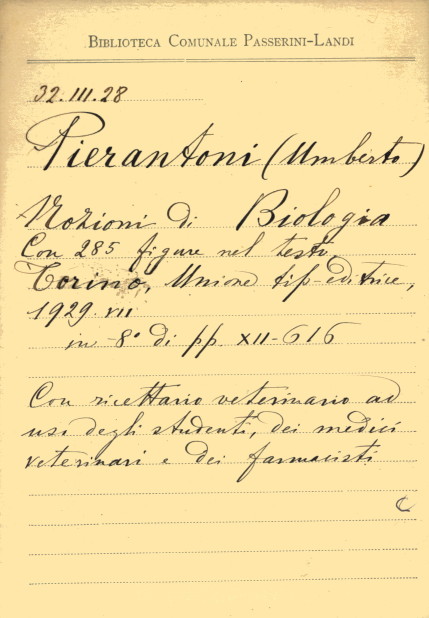 BIBLIOTECA COMUNALE PASSERINI-LANDI
32.III.28
Pierantoni (Umberto)
Nozioni di Biologia
Con 285 figure nel testo
Torino, Unione tip-editrice,
1929. VII
in -8° di pp. XII-616
Con ricettario veterinario ad
uso degli studenti, dei medici
veterinari e dei farmacisti
C